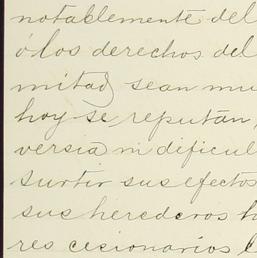 notablemente del
ó los derechos del
mitad sean mu
hoy se reputan,
versia ni dificul
surtir sus efectos
sus herederos h
res cesionarios l